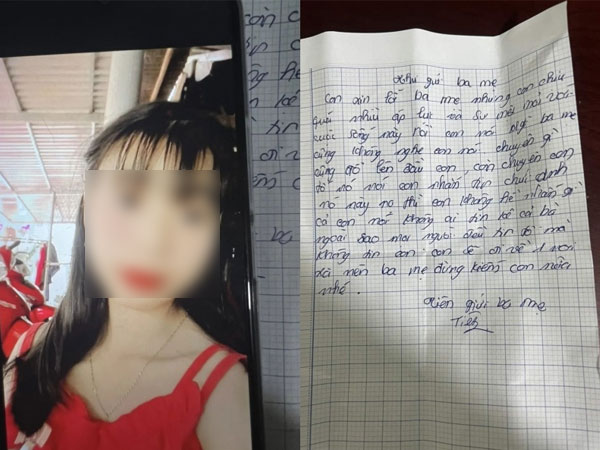 Thư gửi ba mẹ
Con xin lỗi ba mẹ nhưng con chịu
quá nhiều áp lực và sự mệt mỏi với
cuộc sống này rồi con nói ba mẹ
cũng không nghe con nói chuyện gì
cũng đổ lên đầu con, còn chuyện con
nó nói con nhắn tin chửi
nó này nọ thì con không hề nhắn gì
cả con nói không ai tin kể cả bà
ngoại sao mọi người đều tin nó mà
không tin con con sẽ đi về 1 nơi
xa nên ba mẹ đừng kiếm con nữa
nhé.
gửi ba mẹ